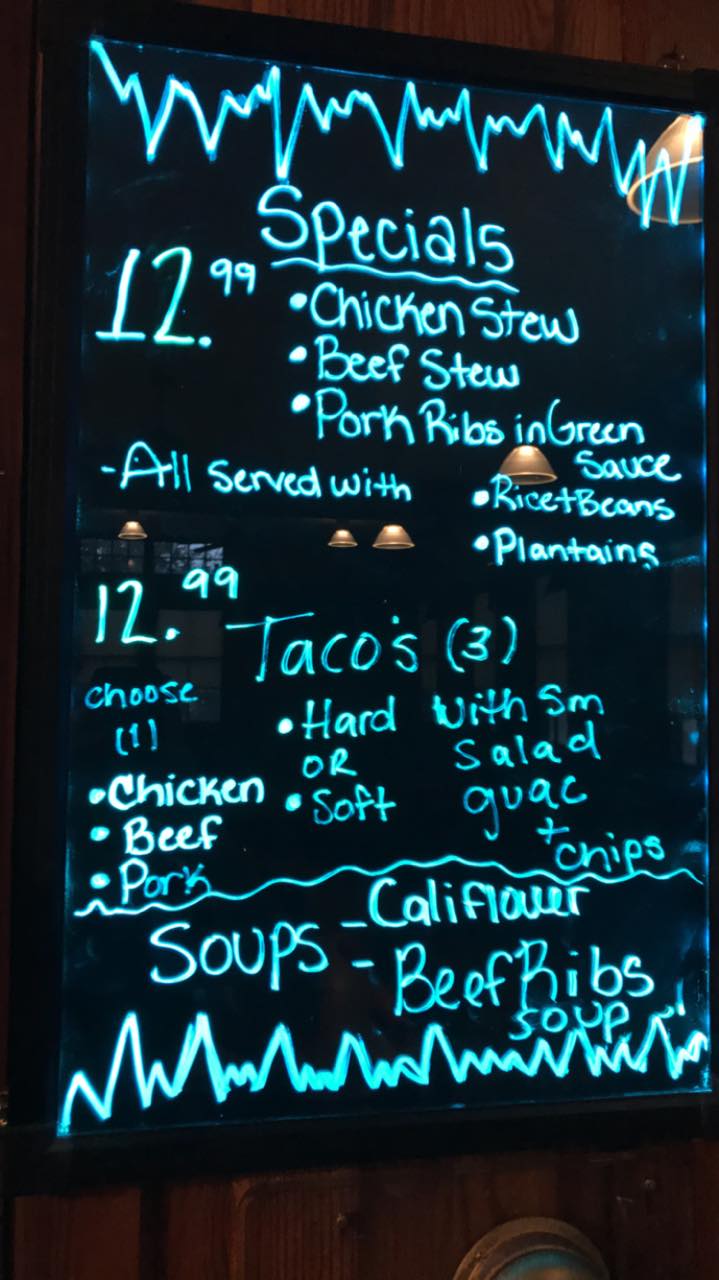 Specials
12.99
• Chicken Stew
• Beef Stew
• Pork Ribs in Green
Sauce
- All Served with
• Rice + Beans
• Plantains
12.99
Taco's (3)
choose
(1)
• Chicken
• Beef
• Pork
• Hard
OR
• Soft
with Sm
Salad
guac
+ chips
Soups
- Califlower
- Beef Ribs
soup